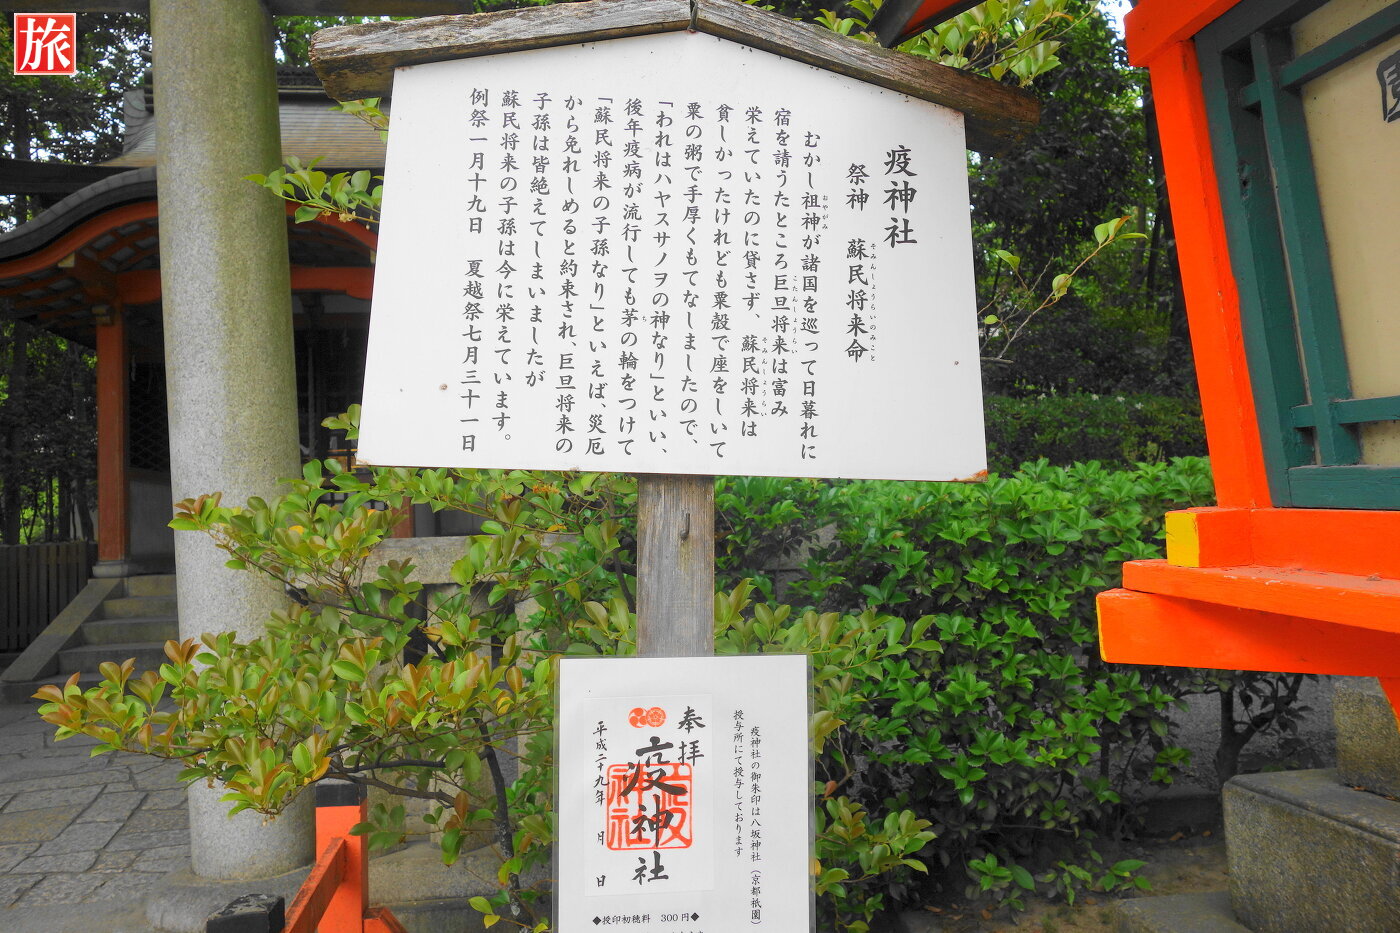 旅
疫神社
祭神　蘇民将来命
そみんしょうらいのみこと
むかし祖神が諸国を巡って日暮れに
おやがみ
宿を請うたところ巨旦将来は富み
こたんしょうらい
栄えていたのに貸さず、蘇民将来は
そみんしょうらい
貧しかったけれども粟殻で座をしいて
粟の粥で手厚くもてなしましたので、
「われはハヤスサノヲの神なり」といい、
後年疫病が流行しても茅の輪をつけて
ち
「蘇民将来の子孫なり」といえば、災厄
から免れしめると約束され、巨旦将来の
子孫は皆絶えてしまいましたが
蘇民将来の子孫は今に栄えています。
例祭一月十九日　夏越祭七月三十一日
疫神社の御朱印は八坂神社（京都祇園）
授与所にて授与しております
奉拝
疫神社
疫神社
平成二九年　月　日
◆授印初穂料　300円◆